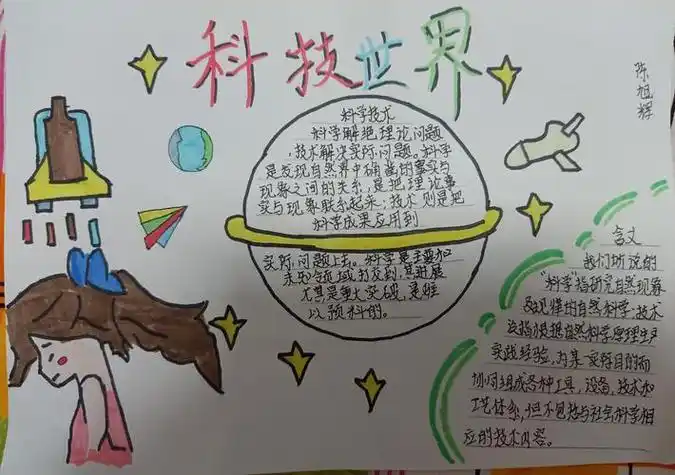 科技世界
陈旭辉
科学技术
科学解决理论问题
,技术解决实际问题。科学
是发现自然界中确凿的事实与
现象之间的关系,是把理论事
实与现象联系起来;技术则是把
科学成果应用到
实际问题上去。科学是主要和
未知的领域打交到,其进展
尤其是重大突破,是难
以预料的。
含义
我们所说的
"科学"指研究自然现象
及规律的自然科学,技术
泛指根据自然科学原理生产
实践经验,为某一实际目的而
协同组成各种工具、设备、技术和
工艺体系,但不包括与社会科学相
应的技术内容。